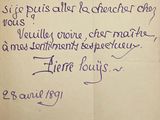 si je puis aller la chercher chez
vous ?
Veuillez croire, cher maître,
à mes sentiments respectueux.
Pierre Louÿs.
28 avril 1891